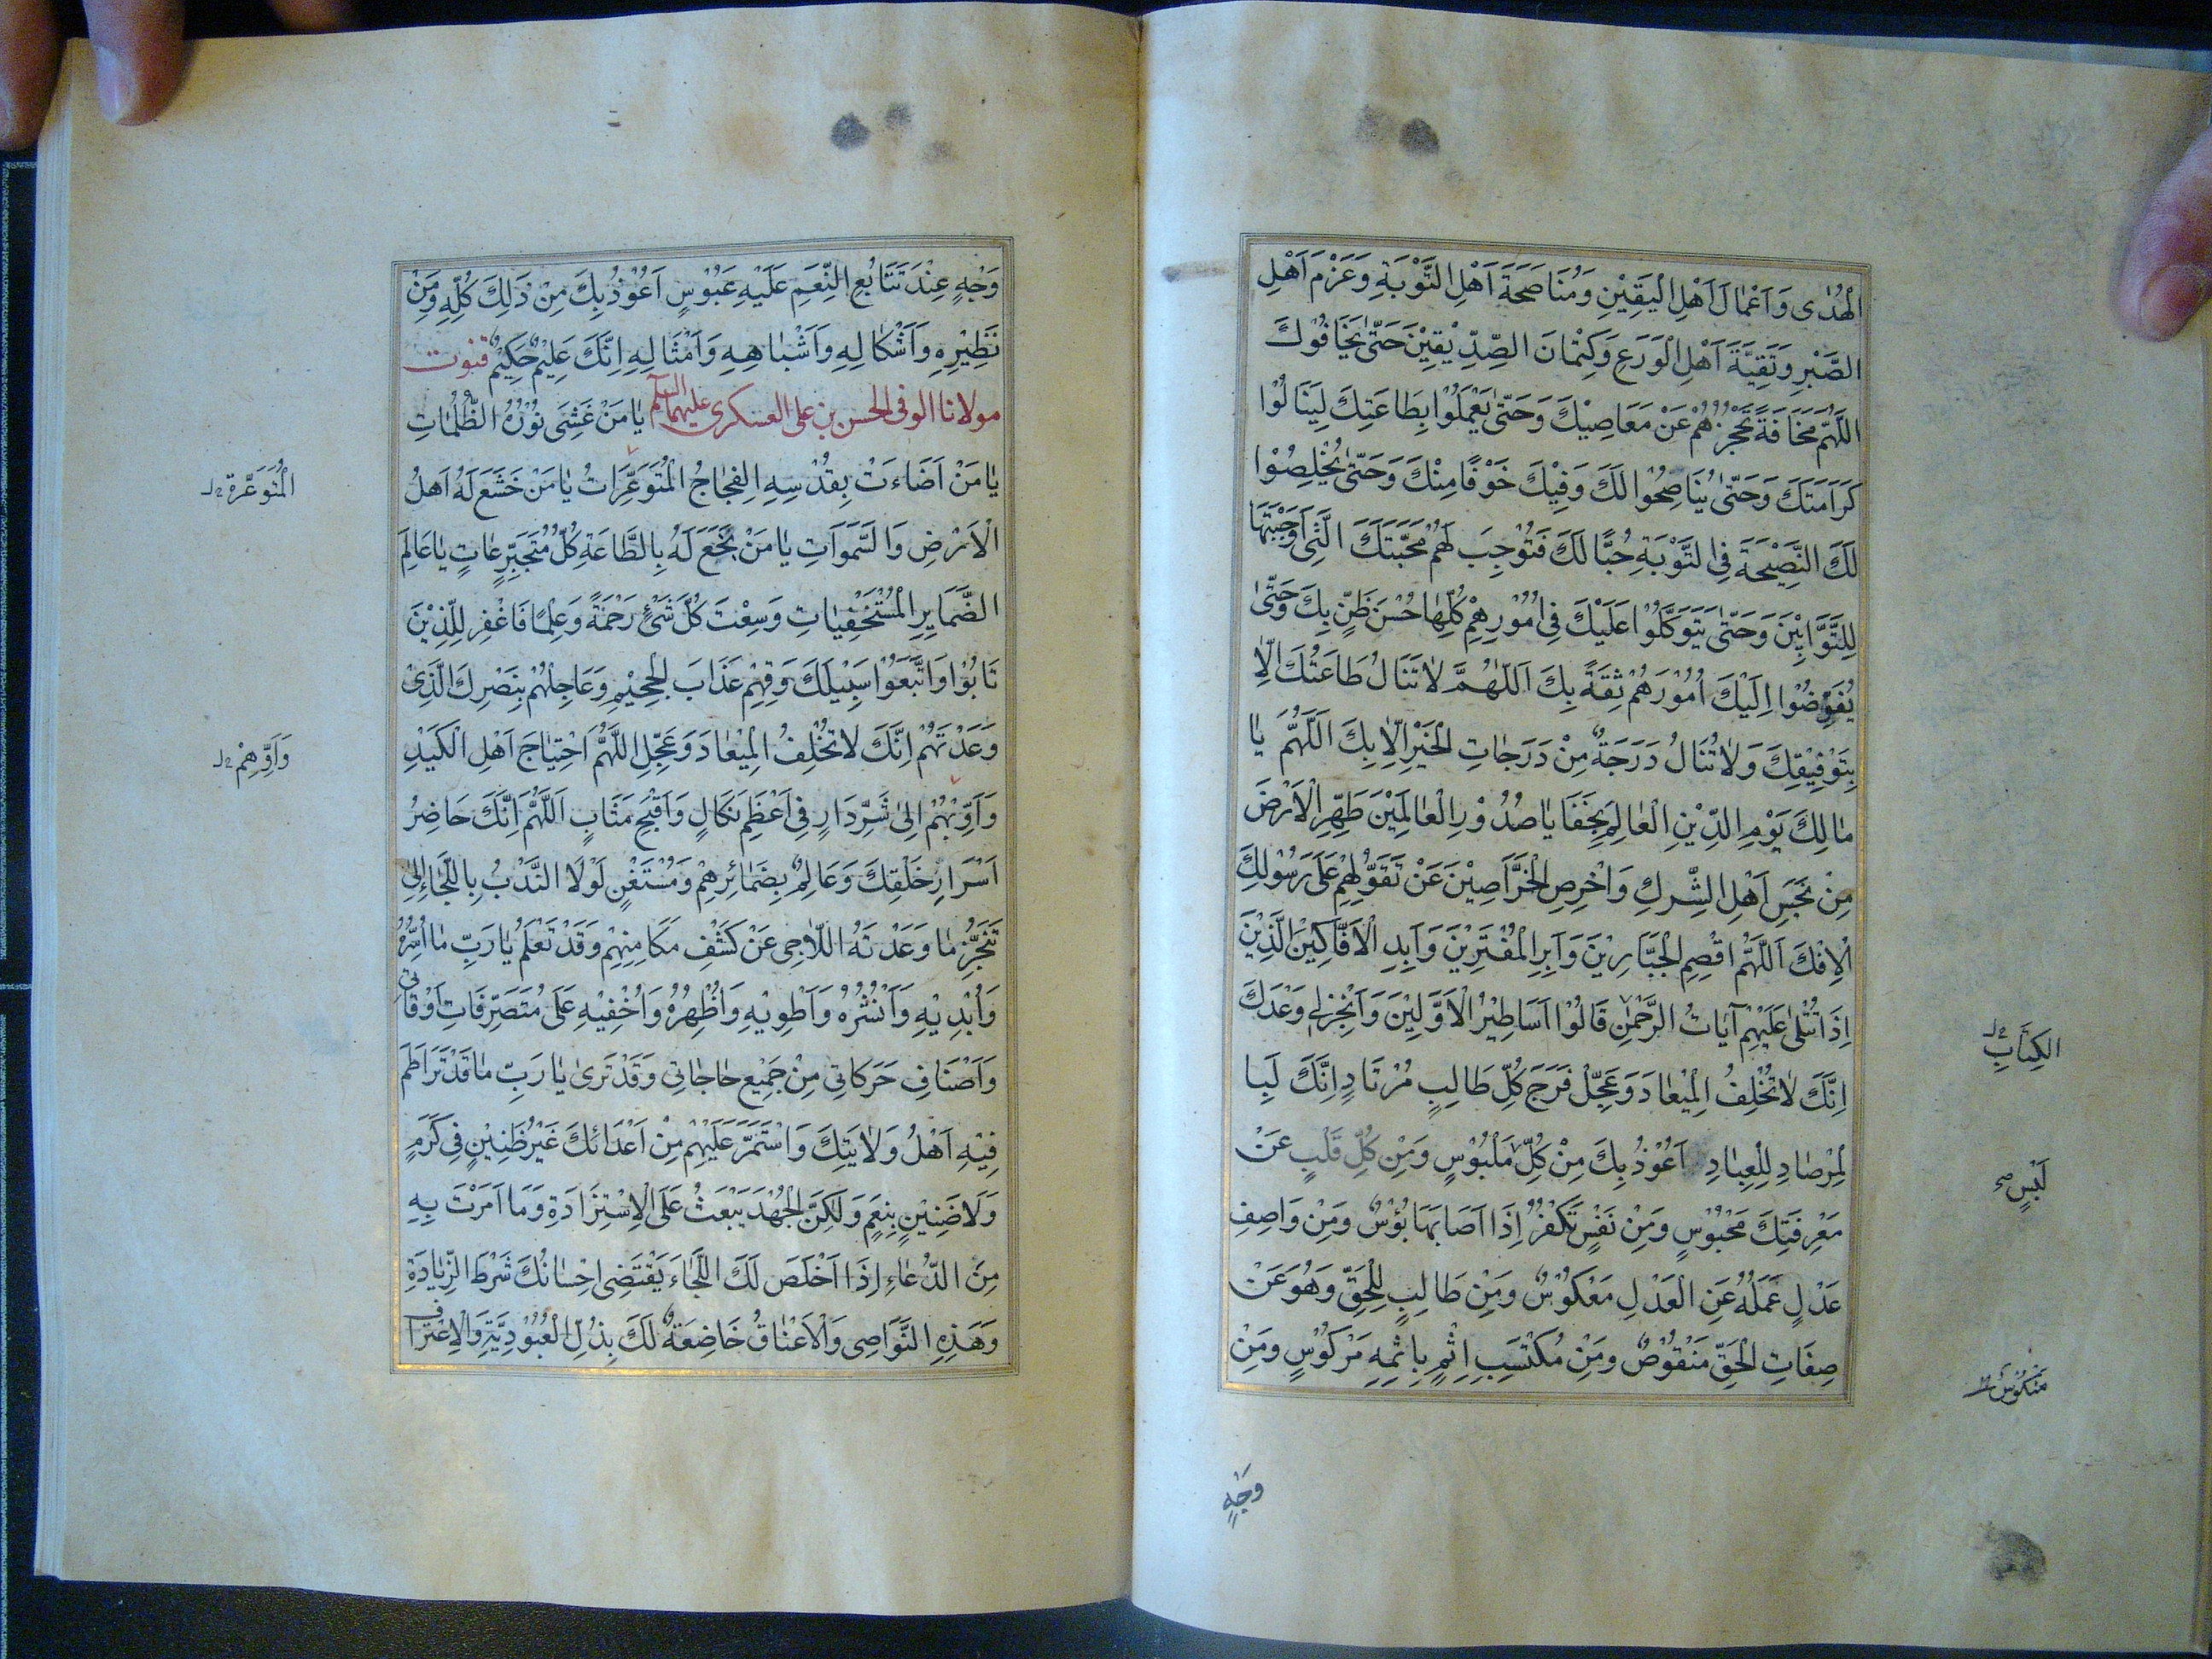 الْهُدٰى وَاَعْمٰالَ اَهْلِ الْيَقِيْنِ وَمُنَاصَحَةَ اَهْلِ التَّوْبَةِ وَعَزْمَ اَهْلِ
الصَّبْرِ وَتَقِيَّةَ اَهْلِ الْوَرَعِ وَكِتْمٰانَ الصِّدِّيْقِيْنَ حَتّٰى يَخٰافُوْكَ
اَللّٰهُمَّ مَخَافَةً تَحْجُزُهُمْ عَنْ مَعَاصِيْكَ وَحَتّٰى يَعْمَلُوْا بِطَاعَتِكَ لِيَنَالُوْا
كَرَامَتَكَ وَحَتّٰى يُنَاصِحُوْا لَكَ وَفِيْكَ خَوْفًا مِنْكَ وَحَتّٰى يُخْلِصُوْا
لَكَ النَّصِيْحَةَ فِى التَّوْبَةِ حُبًّا لَكَ فَتُوْجِبَ لَهُمْ مَحَبَّتَكَ الَّتِى اَوْجَبْتَهَا
لِلتَّوَّابِيْنَ وَحَتّٰى يَتَوَكَّلُوْا عَلَيْكَ فِى اُمُوْرِهِمْ كُلِّهٰا حُسْنَ ظَنٍّ بِكَ وَحَتّٰى
يُفَوِّضُوْا اِلَيْكَ اُمُوْرَهُمْ ثِقَةً بِكَ اَللّٰهُمَّ لٰا تَنَالُ طَاعَتُكَ اِلّٰا
بِتَوْفِيْقِكَ وَلٰا تُنَالُ دَرَجَةٌ مِنْ دَرَجٰاتِ الْخَيْرِ اِلّٰا بِكَ اَللّٰهُمَّ يٰا
مٰالِكَ يَوْمِ الدِّيْنِ الْعٰالِمَ بِخَفَايٰا صُدُوْرِ الْعٰالَمِيْنَ طَهِّرِ الْاَرْضَ
مِنْ نَجَسِ اَهْلِ الشِّرْكِ وَاخْرِصِ الْخَرَّاصِيْنَ عَنْ تَقَوُّلِهِمْ عَلَى رَسُوْلِكَ
الْاِفْكَ اَللّٰهُمَّ اقْصِمِ الْجَبَّارِيْنَ وَاَبِرِ الْمُفْتَرِيْنَ وَاَبِدِ الْاَفَّاكِيْنَ الَّذِيْنَ
اِذَا تُتْلٰى عَلَيْهِمْ آيَاتُ الرَّحْمٰنِ قَالُوْا اَسَاطِيْرُ الْاَوَّلِيْنَ وَاَنْجِزْ لِى وَعْدَكَ
الكِتَابِ ل
اِنَّكَ لٰا تُخْلِفُ الْمِيْعٰادَ وَعَجِّلْ فَرَجَ كُلِّ طَالِبٍ مُرْتَادٍ اِنَّكَ لَبِا
لْمِرْصٰادِ لِلْعِبٰادِ اَعُوْذُ بِكَ مِنْ كُلِّ مَلْبُوْسٍ وَمِنْ كُلِّ قَلْبٍ عَنْ
لَبْسٍ
مَعْرِفَتِكَ مَحْبُوْسٍ وَمِنْ نَفْسٍ تَكْفُرُ اِذَا اَصَابَهَا بُؤْسٌ وَمِنْ وَاصِفِ
عَدْلٍ عَمَلُهُ عَنِ الْعَدْلِ مَعْكُوْسٌ وَمِنْ طَالِبٍ لِلْحَقِّ وَهُوَ عَنْ
صِفَاتِ الْحَقِّ مَنْقُوْصٌ وَمِنْ مُكْتَسِبِ اِثْمٍ بِاِثْمِهِ مَرْكُوْسٍ وَمِنْ
مَنْكُوْسٌ
وَجْهٍ
وَجْهٍ عِنْدَ تَتَابُعِ النِّعَمِ عَلَيْهِ عَبُوْسٍ اَعُوْذُ بِكَ مِنْ ذَلِكَ كُلِّهِ وَمِنْ
نَظِيْرِهِ وَاَشْكَالِهِ وَاَشْبٰاهِهِ وَاَمْثَالِهِ اِنَّكَ عَلِيْمٌ حَكِيْمٌ قنوت
مولانا الوفى الحسن بن على العسكرى عليهما السلم يٰا مَنْ غَشِىَ نُوْرُهُ الظُّلُمٰاتِ
يٰا مَنْ اَضَاءَتْ بِقُدْسِهِ الْفِجَاجُ الْمُتَوَعِّرَاتُ يٰا مَنْ خَشَعَ لَهُ اَهْلُ
الْمُتَوَعِّرَة ل
الْاَرْضِ وَالسَّمٰوَاتِ يٰا مَنْ بَخَعَ لَهُ بِالطَّاعَةِ كُلُّ مُتَجَبِّرٍ عٰاتٍ يٰا عَالِمَ
الضَّمَايِرِ الْمُسْتَخْفِيٰاتِ وَسِعْتَ كُلَّ شَىْءٍ رَحْمَةً وَعِلْمًا فَاغْفِرْ لِلَّذِيْنَ
تَابُوْا وَاتَّبَعُوْا سَبِيْلَكَ وَقِهِمْ عَذَابَ الْجَحِيْمِ وَعَاجِلْهُمْ بِنَصْرِكَ الَّذِىْ
وَعَدْتَهُمْ اِنَّكَ لَا تُخْلِفُ الْمِيْعٰادَ وَعَجِّلِ اللَّهُمَّ اجْتِيَاحَ اَهْلِ الْكَيْدِ
وَاَوِّهِمْ ل
وَاَوِّبْهُمْ اِلٰى شَرِّ دَارٍ فِى اَعْظَمِ نَكَالٍ وَاَقْبَحِ مَثَابٍ اَللّٰهُمَّ اِنَّكَ حَاضِرُ
اَسْرَارِ خَلْقِكَ وَعَالِمٌ بِضَمٰائِرِهِمْ وَمُسْتَغْنٍ لَوْلَا النَّدْبُ بِاللَّجَاءِ اِلٰى
تَنَجُّزِ مٰا وَعَدْتَهُ اللّٰاجِى عَنْ كَشْفِ مَكَامِنِهِمْ وَقَدْ تَعْلَمُ يٰا رَبِّ مٰا اُسِرُّهُ
وَاُبْدِيْهِ وَاَنْشُرُهُ وَاَطْوِيْهِ وَاُظْهِرُهُ وَاُخْفِيْهِ عَلَى مُتَصَرِّفَاتِ اَوْقَاتِى
وَاَصْنَافِ حَرَكَاتِى مِنْ جَمِيْعِ حٰاجٰاتِى وَقَدْ تَرٰى يٰا رَبِّ مٰا قَدْ تَرَاطَمَ
فِيْهِ اَهْلُ وَلٰايَتِكَ وَاسْتَمَرَّ عَلَيْهِمْ مِنْ اَعْدَائِكَ غَيْرُ ظَنِيْنٍ فِى كَرَمٍ
وَلَا ضَنِيْنٍ بِنِعَمٍ وَلَكِنَّ الْجُهْدَ يَبْعَثُ عَلَى الْاِسْتِزَادَةِ وَمَا اَمَرْتَ بِهِ
مِنَ الدُّعٰاءِ اِذَا اَخْلَصَ لَكَ اللَّجَاءَ يَقْتَضِى اِحْسٰانُكَ شَرْطَ الزِّيٰادَةِ
وَهَذِهِ النَّوَاصِى وَالْاَعْنٰاقُ خَاضِعَةٌ لَكَ بِذُلِّ الْعُبُوْدِيَّةِ وَالْاِعْتِرَافِ